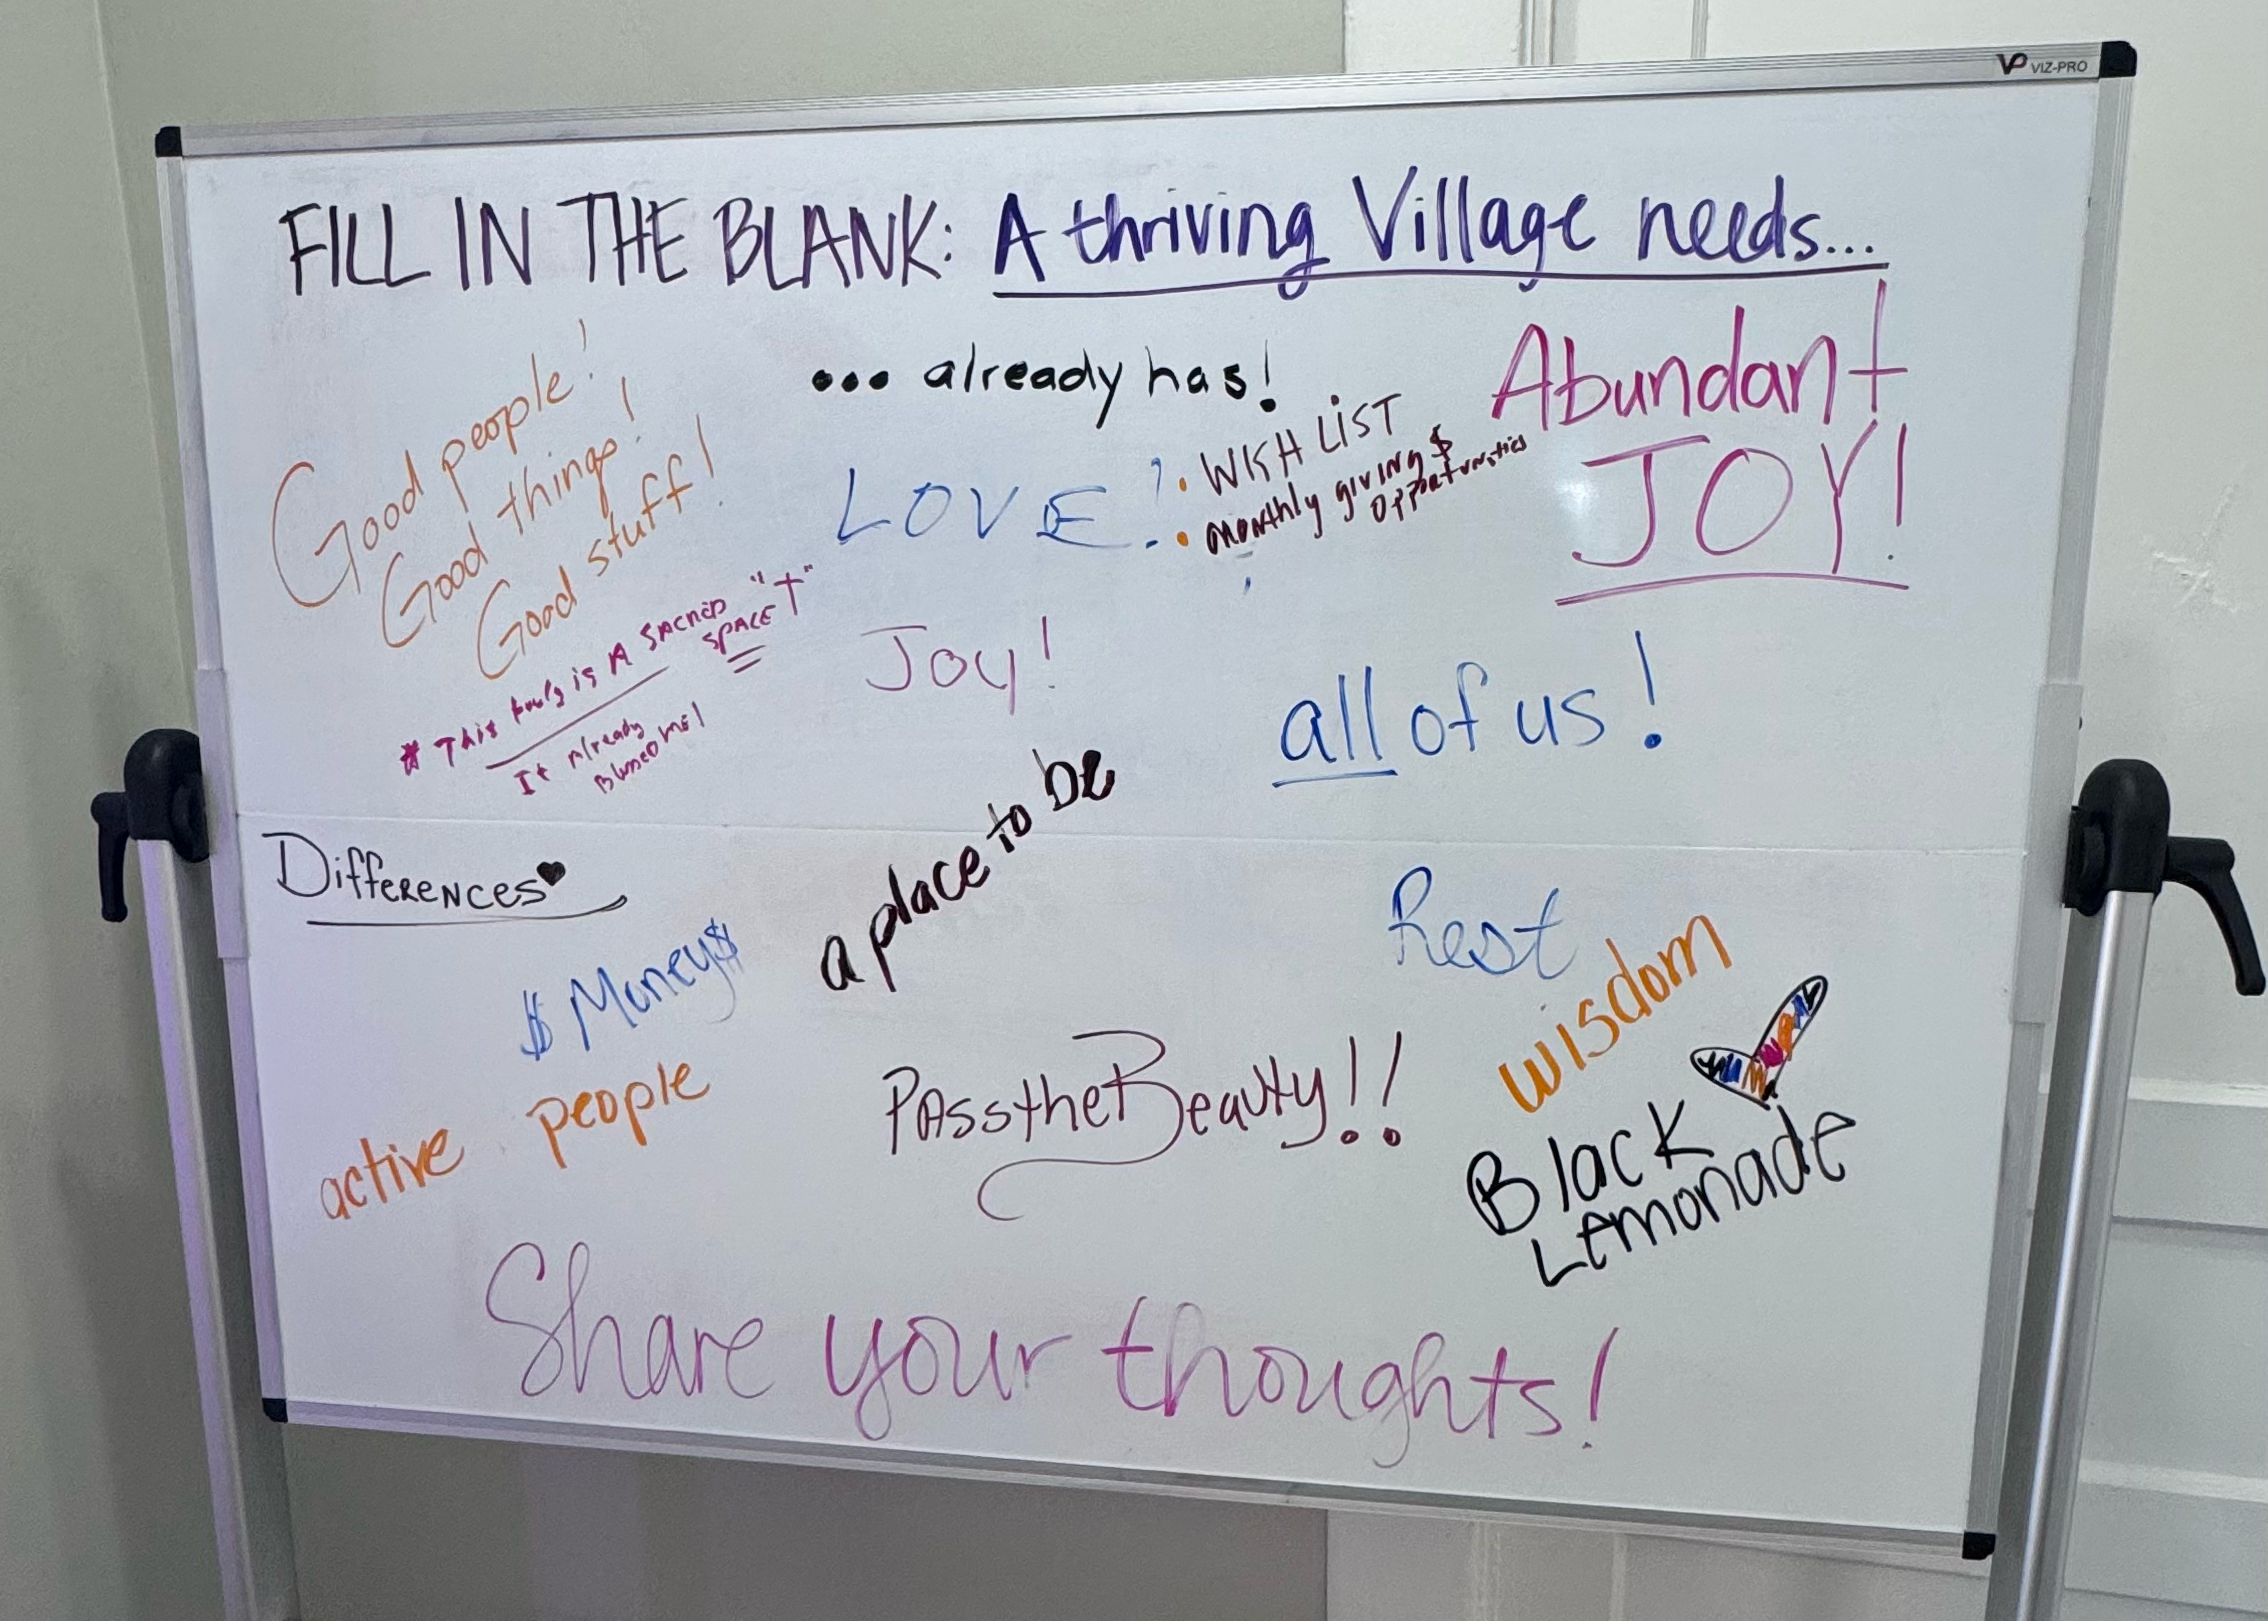 VP VIZ-PRO
FILL IN THE BLANK: A thriving Village needs...
Good people!
Good things!
Good stuff!
... already has!
Abundant
JOY!
LOVE!
• WISH LIST
• monthly giving $
opportunities
# This is A SACRED
SPACE "T"
It Already
me!
Joy!
all of us!
a place to be
Differences♥
$ Money $
active people
Rest
wisdom
PAsstheBeauty!!
Black
Lemonade
Share your thoughts!